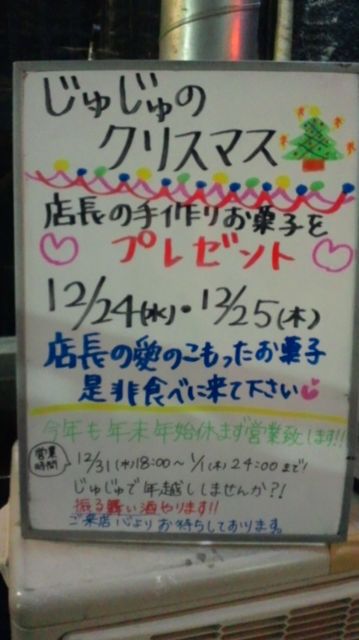 じゅじゅの
クリスマス
店長の手作りお菓子を
プレゼント
12/24(水)・12/25(木)
店長の愛のこもったお菓子
是非食べに来て下さい
今年も年末年始休まず営業致します!!
営業時間
12/31(水)18:00〜1/1(木)24:00まで!
じゅじゅで年越ししませんか?!
振る舞い酒やります!!
ご来店心よりお待ちしております。